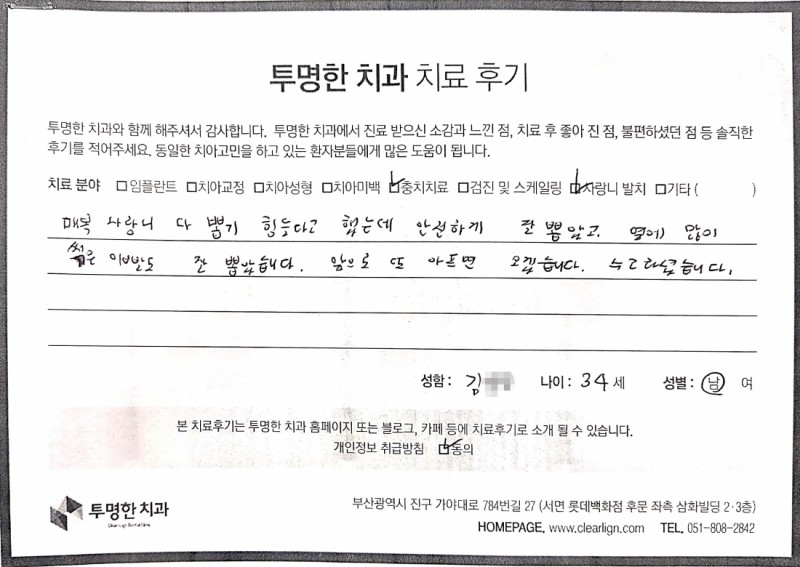 투명한 치과 치료 후기
투명한 치과와 함께 해주셔서 감사합니다. 투명한 치과에서 진료 받으신 소감과 느낀 점, 치료 후 좋아 진 점, 불편하셨던 점 등 솔직한
후기를 적어주세요. 동일한 치아고민을 하고 있는 환자분들에게 많은 도움이 됩니다.
치료 분야 □임플란트 □치아교정 □치아성형 □치아미백 ☑충치치료 □검진 및 스케일링 ☑사랑니 발치 □기타 ( )
매복 사랑니 다 뽑기 힘듯다고 했는데 안전하게 잘 뽑았고. 옆에 많이
썩은 이빨도 잘 뽑았습니다. 앞으로 또 아프면 오겠습니다. 수고하셨습니다.
성함 : 김 나이 : 34 세 성별 : 남 여
본 치료후기는 투명한 치과 홈페이지 또는 블로그, 카페 등에 치료후기로 소개 될 수 있습니다.
개인정보 취급방침 ☑동의
투명한 치과
부산광역시 진구 가야대로 784번길 27 (서면 롯데백화점 후문 좌측 삼화빌딩 2·3층)
HOMEPAGE. www.clearlign.com TEL. 051-808-2842